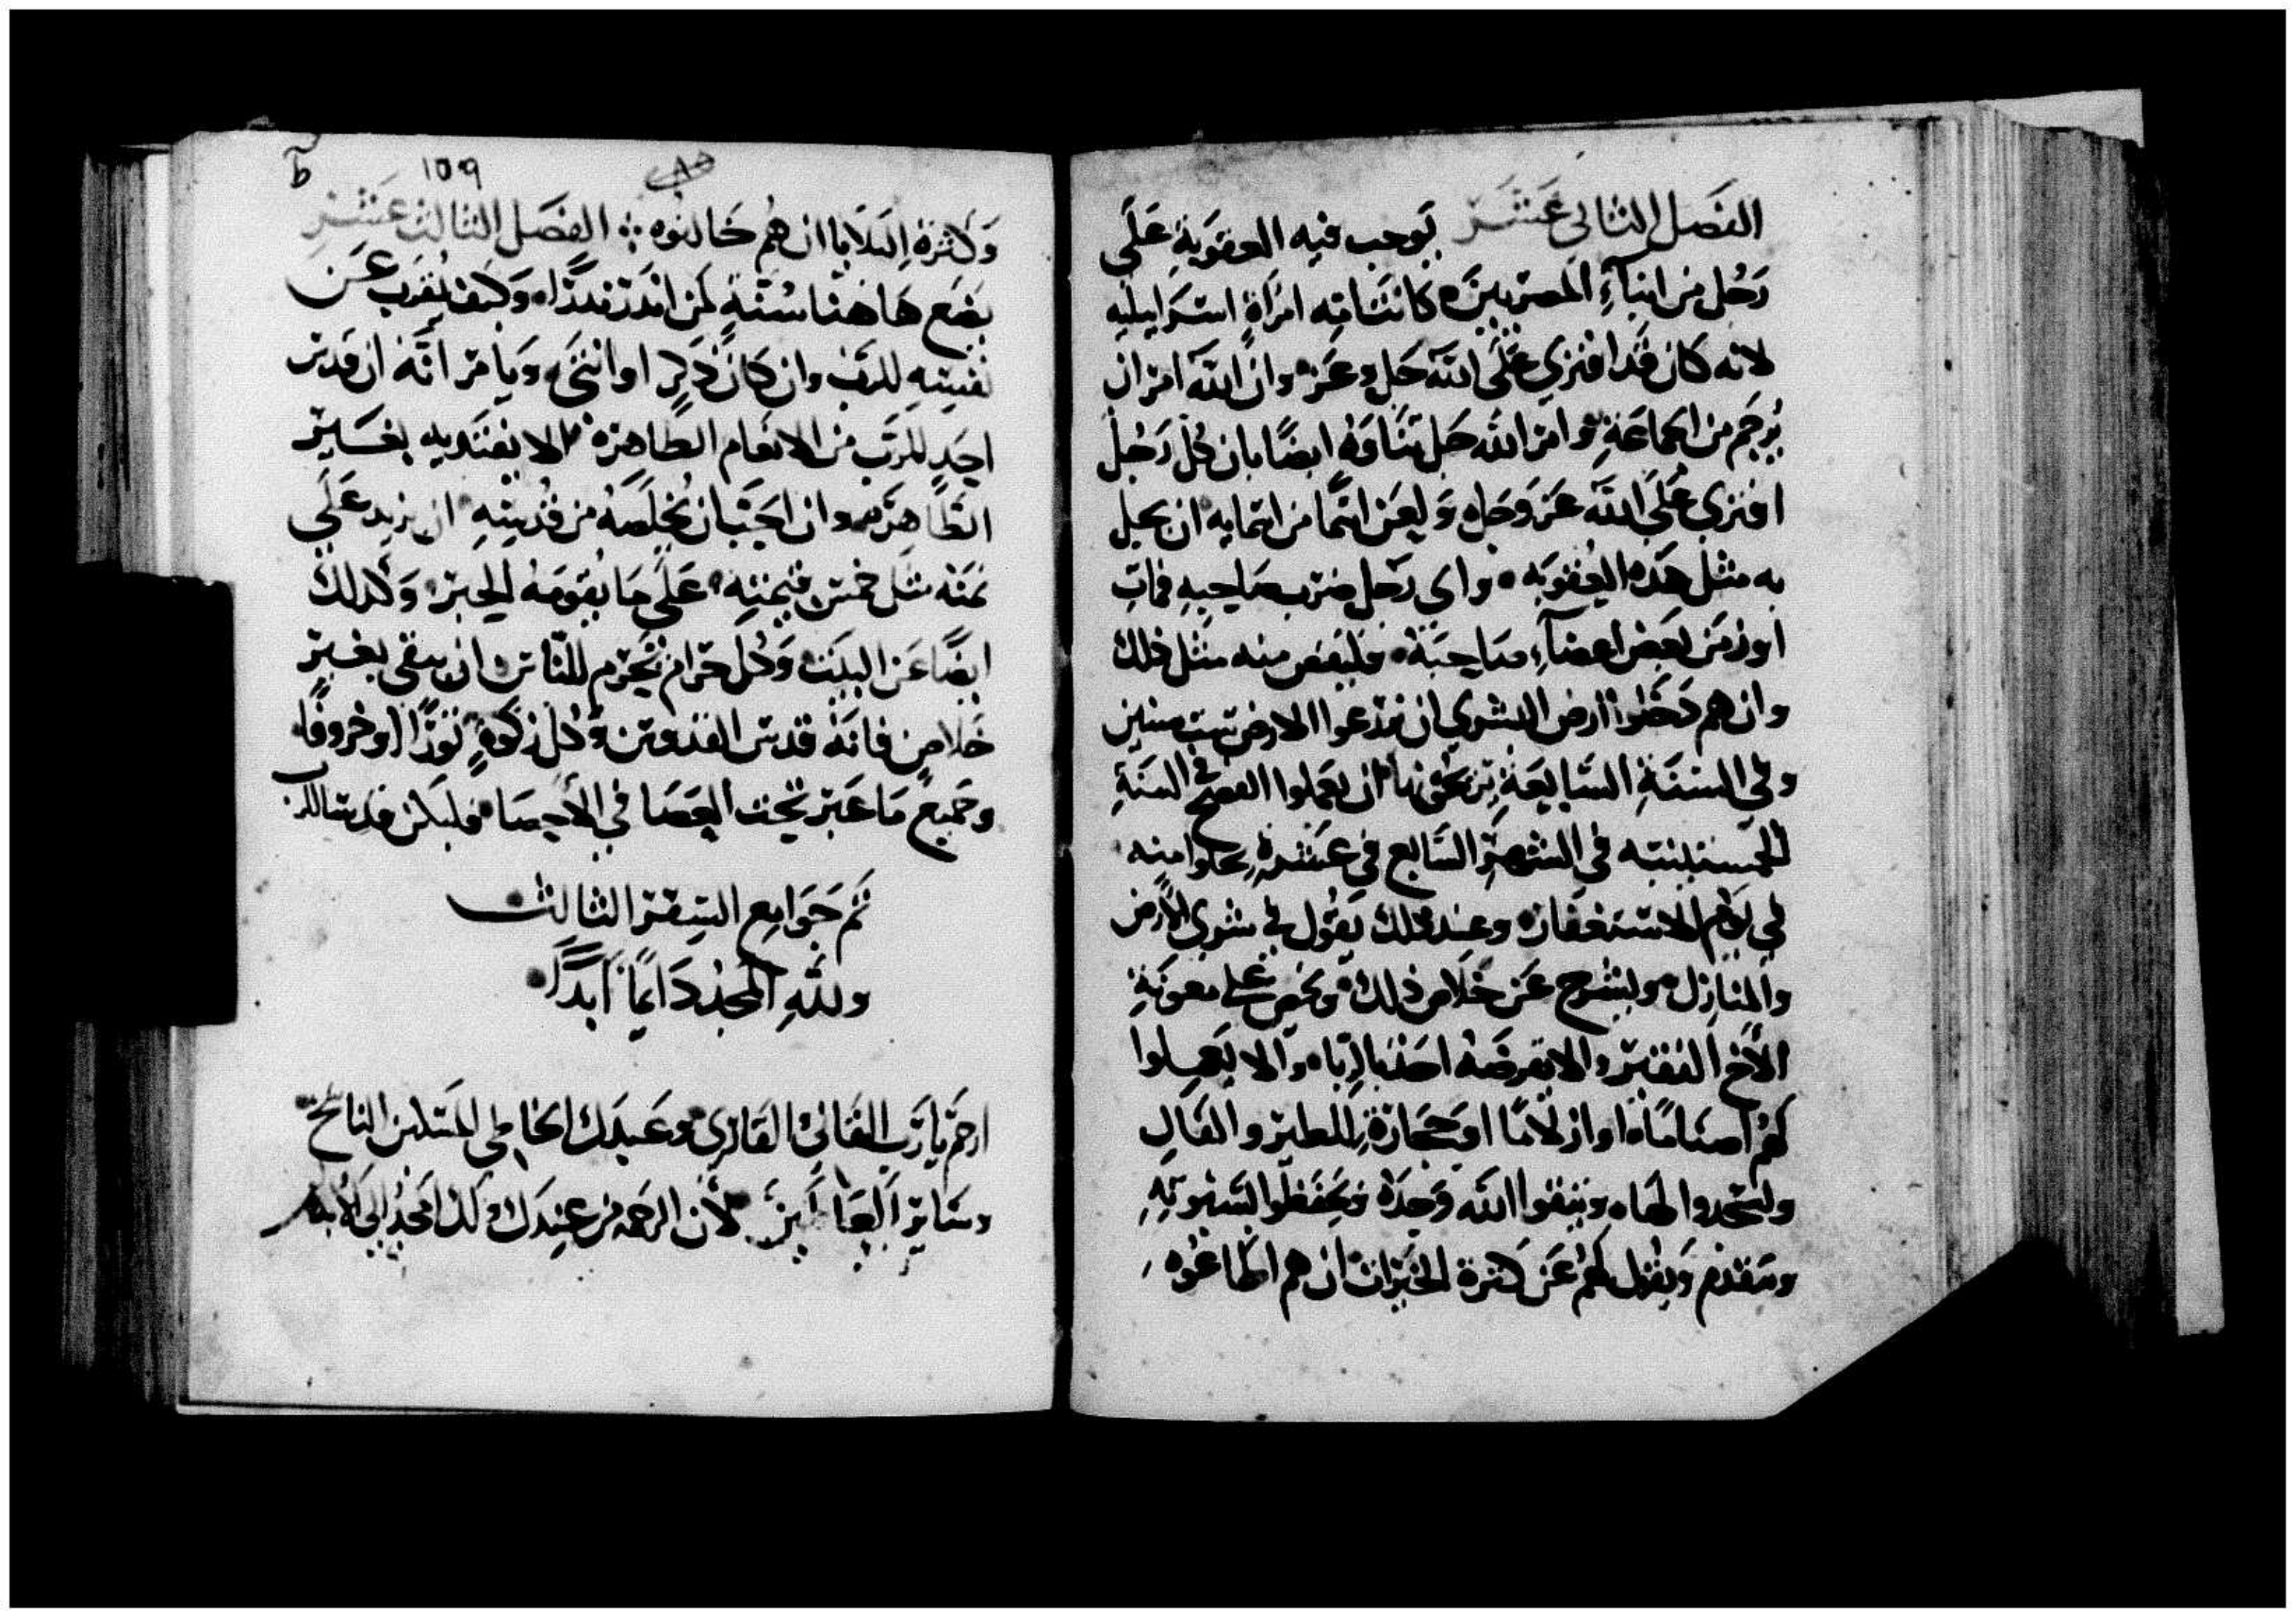 الفصل الثاني عشر يوجب فيه العقوبة على
رجل من ابناء المصريين كانت امه امراة اسراييليه
لانه كان قد افتري على الله جل وعز وان الله امر ان
يرجم من الجماعة وامر الله جل ثناوه ايضا بان كل رجل
افتري على الله عز وجل وليعن اثما من اثمايه ان يحل
به مثل هذه العقوبه واي رجل ضرب صاحبه فمات
او زمن بعض اعضاء صاحبه فليقص منه مثل ذلك
وان هم دخلوا ارض البشري ان يزرعوا الارض ست سنين
وفي السنة السابعة ان يعملوا الفصح في السنة
في الشهر السابع في عشرة يخلوا منه
في يوم الاستغفار وعند ذلك يقول في شري الارض
والمنازل ويشرح عن خلاص ذلك ويحض على معونة
الاخ الفقير والا يقرضه احد بالربا والا يعملوا
لهم اصناما او ازلاما او حجارة للطير والفال
وليتخذوا الها ويتقوا الله وحده ويحفظوا السبوتة
ويتقدم ويقول لهم عن كثرة الخيرات ان هم اطاعوه
ط ١٥٩
وكثرة البلايا ان هم خالفوه الفصل الثالث عشر
يضع هاهنا سنة لمن انذر نذرا وكيف يقرب عن
نفسه للرب وان كان ذكر او انثى ويامر انه ان قدس
احد للرب من الانعام الطاهرة الا يفتديه بغير
الطاهر وان احب ان يخلصه من قدسه ان يزيد على
ثمنه مثل خمس قيمته على ما يقومه الحبر وكذلك
ايضا عن البيت وكل حرام يحرم للناس ان يبقى بغير
خلاص فانه قدس القدوس وكل زكوة ثورا او خروفا
وجميع ما عبر تحت العصا في الاحصا فليكن قدسا للرب
تم جوامع السفر الثالث
ولله المجد دايما ابدا
ارحم يا رب القاري وعبدك الخاطي المسكين الناسخ
وساير لان الرحمه من عندك لك المجد الى الابد